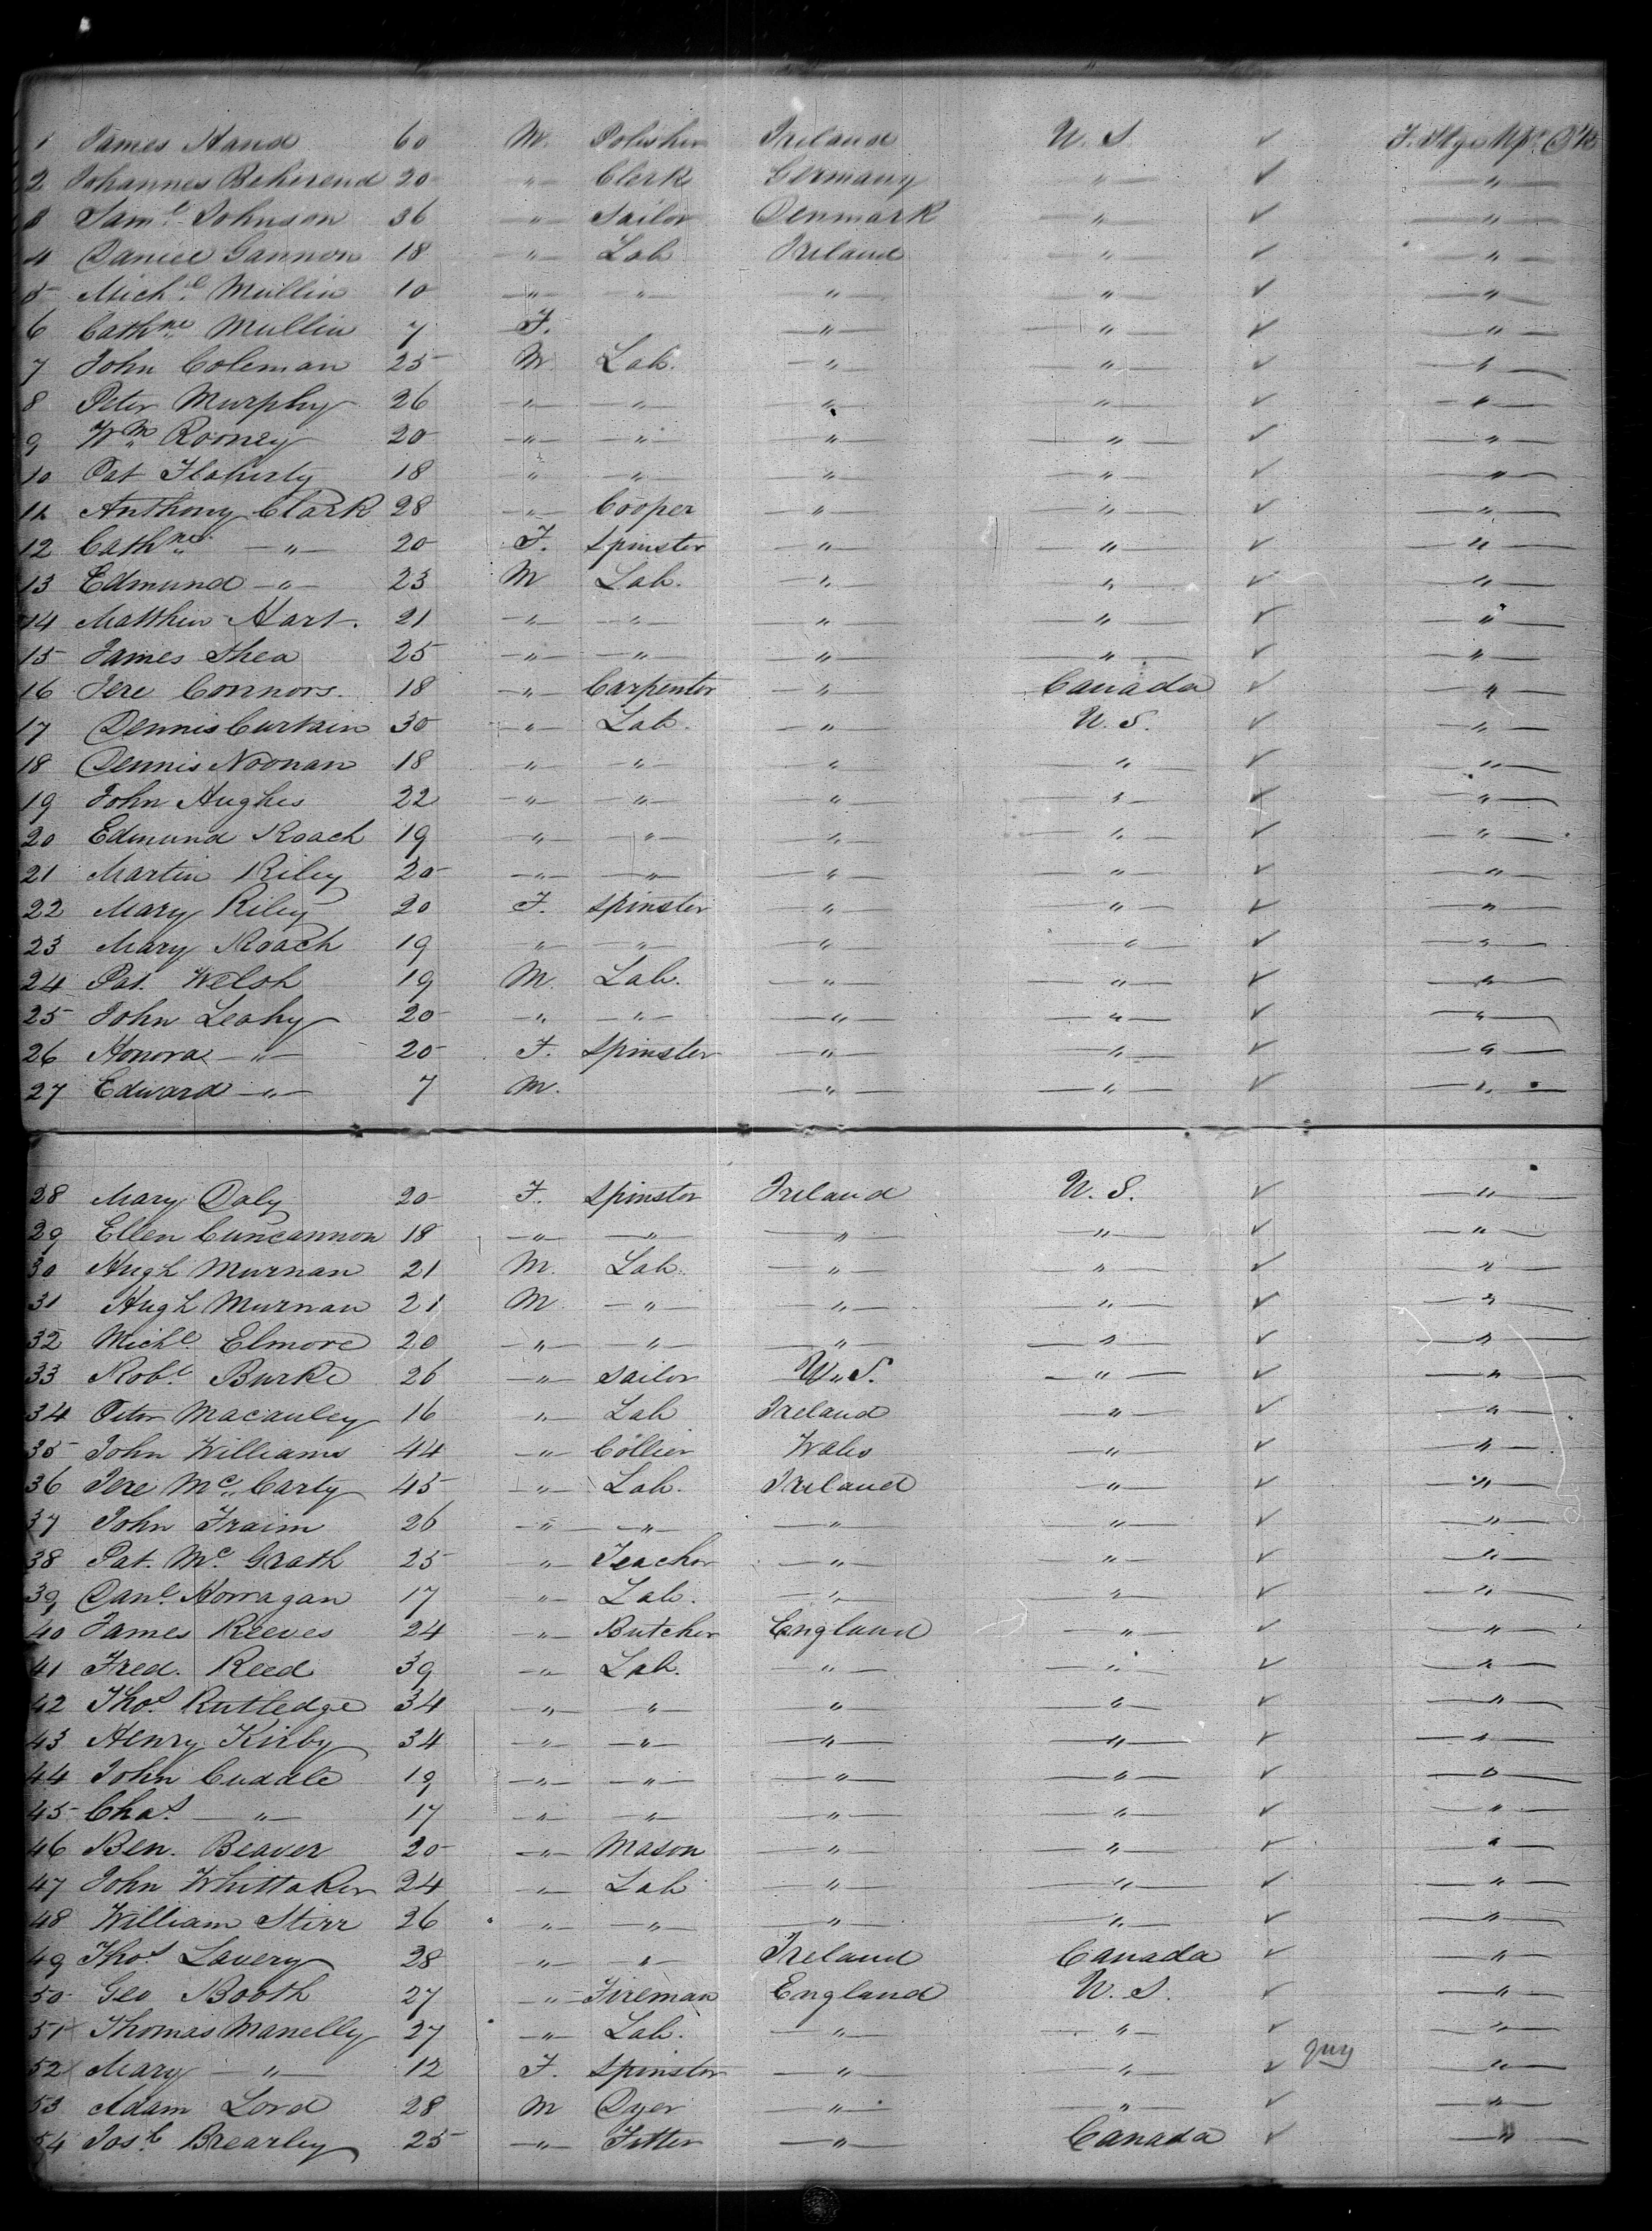 1 James Hand 60 M. Polisher Ireland U. S. ✓ F. Stge Upr Dk
2 Johannes Beherend 20 " Clerk Germany " ✓ "
3 Saml Johnson 36 " Sailor Denmark " ✓ "
4 Daniel Gannon 18 " Lab Ireland " ✓ "
5 Michl Mullin 10 " " " " ✓ "
6 Cathne Mullin 7 F. " " ✓ "
7 John Coleman 25 M Lab. " " ✓ "
8 Peter Murphy 26 " " " " ✓ "
9 Wm Rooney 20 " " " " ✓ "
10 Pat Flaherty 18 " " " " ✓ "
11 Anthony Clark 28 " Cooper " " ✓ "
12 Cathne " 20 F. Spinster " " ✓ "
13 Edmund " 23 M Lab. " " ✓ "
14 Matthew Hart. 21 " " " " ✓ "
15 James Shea 25 " " " " ✓ "
16 Jere Connors. 18 " Carpenter " Canada ✓ "
17 Dennis Curtain 30 " Lab. " U. S. ✓ "
18 Dennis Noonan 18 " " " " ✓ "
19 John Hughes 22 " " " " ✓ "
20 Edmund Roach 19 " " " " ✓ "
21 Martin Riley 20 " " " " ✓ "
22 Mary Riley 20 F. Spinster " " ✓ "
23 Mary Roach 19 " " " " ✓ "
24 Pat. Welsh 19 M. Lab. " " ✓ "
25 John Leahy 20 " " " " ✓ "
26 Honora " 20 F. Spinster " " ✓ "
27 Edward " 7 M. " " ✓ "
28 Mary Daly 20 F. Spinster Ireland U. S. ✓ "
29 Ellen Cuncannon 18 " " " " ✓ "
30 Hugh Murnan 21 M. Lab. " " ✓ "
31 Hugh Murnan 21 M " " " ✓ "
32 Michl Elmore 20 " " " " ✓ "
33 Robt Burke 26 " Sailor U. S. " ✓ "
34 Peter Macauley 16 " Lab Ireland " ✓ "
35 John Williams 44 " Collier Wales " ✓ "
36 Jere Mc Carty 45 " Lab. Ireland " ✓ "
37 John Fraim 26 " " " " ✓ "
38 Pat. Mc Grath 25 " Teacher " " ✓ "
39 Danl Horragan 17 " Lab. " " ✓ "
40 James Reeves 24 " Butcher England " ✓ "
41 Fred. Reed 39 " Lab. " " ✓ "
42 Thos Rutledge 34 " " " " ✓ "
43 Henry Kirby 34 " " " " ✓ "
44 John Cuddle 19 " " " " ✓ "
45 Chas " 17 " " " " ✓ "
46 Ben. Beaver 20 " Mason " " ✓ "
47 John Whittaker 24 " Lab " " ✓ "
48 William Stirr 26 " " " " ✓ "
49 Thos Lavery 28 " " Ireland Canada ✓ "
50 Geo Booth 27 " Fireman England U. S. ✓ "
51 Thomas Manelly 27 " Lab. " " ✓ "
52 Mary " 12 F. Spinster " " ✓ "
53 Adam Lord 28 M Dyer " " ✓ "
54 Josh Brearley 25 " Fitter " Canada ✓ "